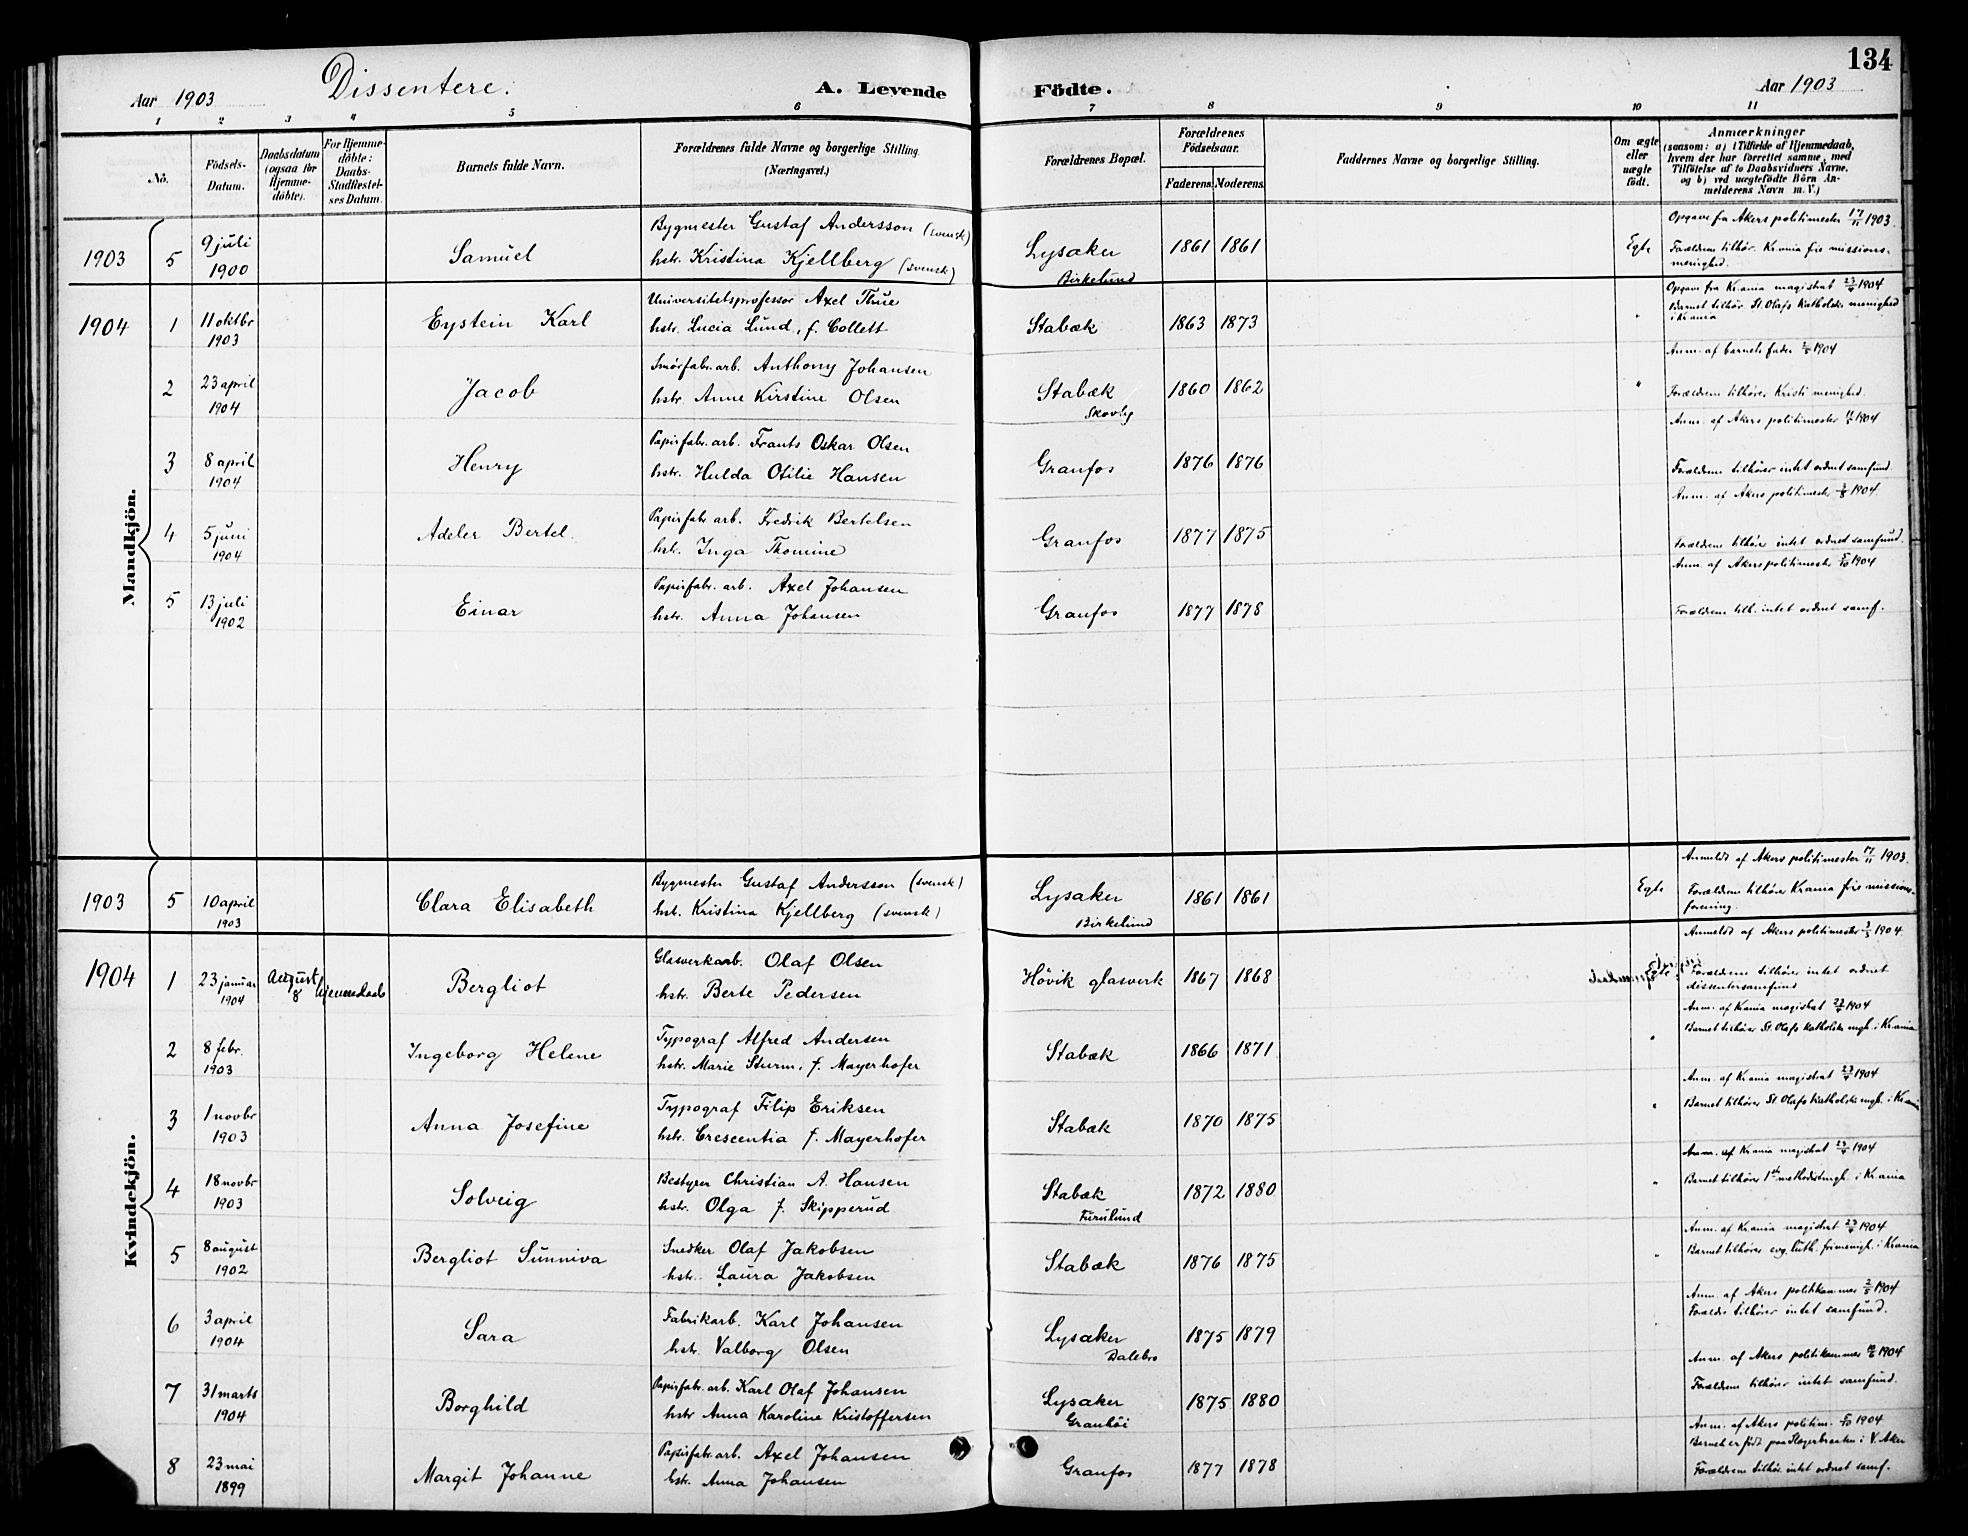 134
Aar 1903 Dissentere. A. Levende Födte. Aar 1903
1 2 3 4 5 6 7 8 9 10 11
No. Födsels-Datum. Daabsdatum (ogsaa for Hjemme-döbte). For Hjemme-döbte: Daabs-Stadfæstel-ses Datum. Barnets fulde Navn. Forældrenes fulde Navne og borgerlige Stilling (Næringsvei.) Forældrenes Bopæl. Forældrenes Födselsaar. Faderens. Moderens. Faddernes Navne og borgerlige Stilling. Om ægte eller uægte födt. Anmærkninger (saasom: a) i Tilfælde af Hjemmedaab, hvem der har forrettet samme, med Tilföielse af to Daabsvidners Navne. og b) ved uægtefödte Börn An-melderens Navn m. V.)
Mandkjön.
1903 5 9 juli 1900 Samuel
Bygmester Gustaf Andersson (svensk)
hstr. Kristina Kjellberg (svensk)
Lysaker Birkelund 1861 1861 Egte
Opgave fra Akers politimester 17/11 1903.
Forældrene tilhör. Krania frie missions-
menighed.
1904 1 11 oktbr 1903 Eystein Karl
Universitetsprofessor Axel Thue
hstr. Lucia Lund, f. Collett
Stabæk 1863 1873 "
Opgave fra Krania magistrat 23/4 1904
Barnet tilhör St. Olafs katholske menighed
i Krania
2 23 april 1904 Jacob
Smörfabr. arb. Anthony Johansen
hstr. Anne Kirstine Olsen
Stabæk Skovly 1860 1862 "
Anm. af barnets fader 1904
Forældrene tilhörer Kristi menighed.
3 8 april 1904 Henry
Papirfabr. arb. Frants Oskar Olsen
hstr. Hulda Otilie Hansen
Granfos 1876 1876
Anm. af Akers politimester 1904
Forældrene tilhörer intet ordnet samfund.
4 5 juni 1904 Adeler Bertel.
Papirfabr arb. Fredrik Bertelsen
hstr. Inga Thomine
Granfos 1877 1875
Anm. af Akers politimester 1904.
Forældrene tilhörer intet ordnet samfund.
5 13 juli 1902 Einar
Papirfabr. arb. Axel Johansen
hstr. Anna Johansen
Granfos 1877 1878
Anm. af Akers politimester 1904
Forældrene tilh. intet ordnet samf.
Kvindekjön.
1903 5 10 april 1903 Clara Elisabeth
Bygmester Gustaf Andersson (svensk)
hst. Kristina Kjellberg (svensk)
Lysaker Birkelund 1861 1861 Egte
Anmeldt af Akers politimester 17/11 1903.
Forældrene tilhörer Krania frie missions-
forening.
1904 1 23 januar 1904 August 8 Hjemmedaab Bergliot
Glasverkarb. Olaf Olsen
hstr. Berte Pedersen
Hövik glasverk 1867 1868
Anmeldt af Akers politimester 1904.
Forældrene tilhörer intet ordnet
dissentersamfund
2 8 febr. 1903 Ingeborg Helene
Typograf Alfred Andersen
hstr. Marie Sturm, f. Mayerhofer
Stabæk 1866 1871 "
Anm. af Krania magistrat 23/4 1904
Barnet tilhörer St. Olafs katholske mgh. i Krania
3 1 novbr 1903 Anna Josefine
Typograf Filip Eriksen
hstr. Crescentia f. Mayerhofer
Stabæk 1870 1875 "
Anm. af Krania magistrat 23/4 1904
Barnet tilhörer St Olafs katholske mgh. i Krania
4 18 novbr 1903 Solveig
Bestyrer Christian A. Hansen
hstr. Olga f. Skipperud
Stabæk Furulund 1872 1880 "
Anm. af Krania magistrat 23/4 1904
Barnet tilhörer 1ste methodistmgh. i Krania
5 8 august 1902 Bergliot Sunniva
Snedker Olaf Jakobsen
hstr. Laura Jakobsen
Stabæk 1876 1875 "
Anm. af Krania magistrat 23/4 1904
Barnet tilhörer evg. luth. frimenigh. i Krania
6 3 april 1904 Sara
Fabrikarb. Karl Johansen
hstr. Valborg Olsen
Lysaker Dalebro 1875 1879
Anm. af Akers politikammer 2/5 1904
Foreldre tilhörer intet samfund.
7 31 marts 1904 Borghild
Papirfabr. arb. Karl Olaf Johansen
hstr Anna Karoline Kristoffersen
Lysaker Granhöi 1875 1880
Anm. af Akers politikammer 1904
Forældrene tilhörer intet samfund.
8 23 mai 1899 Margit Johanne
Papirfabr. arb. Axel Johansen
hstr. Anna Johansen
Granfos 1877 1878
Anm. af Akers politim. 1904
Barnet er född paa i V. Aker
Forældrene tilhör. intet ordnet samf.